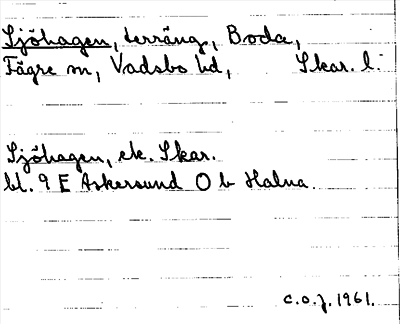 Sjöhagen, terräng, Boda,
Fägre sn, Vadsbo hd, Skar. l.
Sjöhagen, ek. Skar.
bl. 9 E Askersund O b Halna.
C.O.J. 1961.